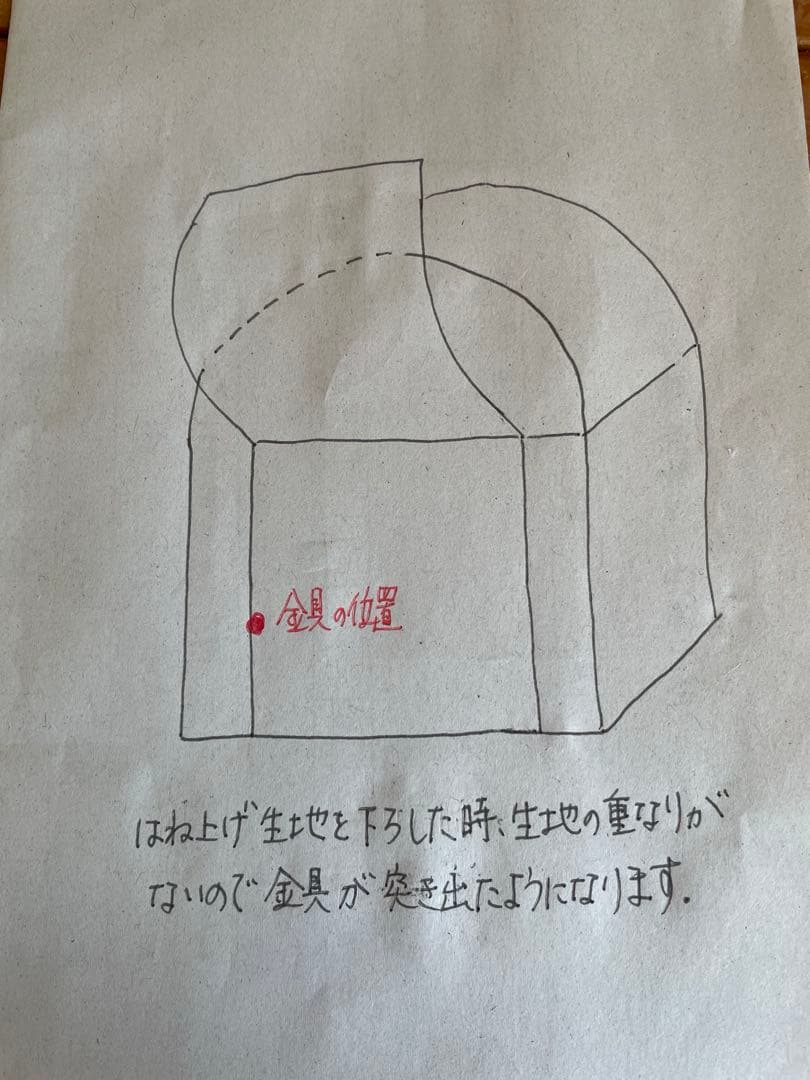 金具の位置
はね上げ生地を下ろした時、生地の重なりが
ないので金具が突き出たようになります.